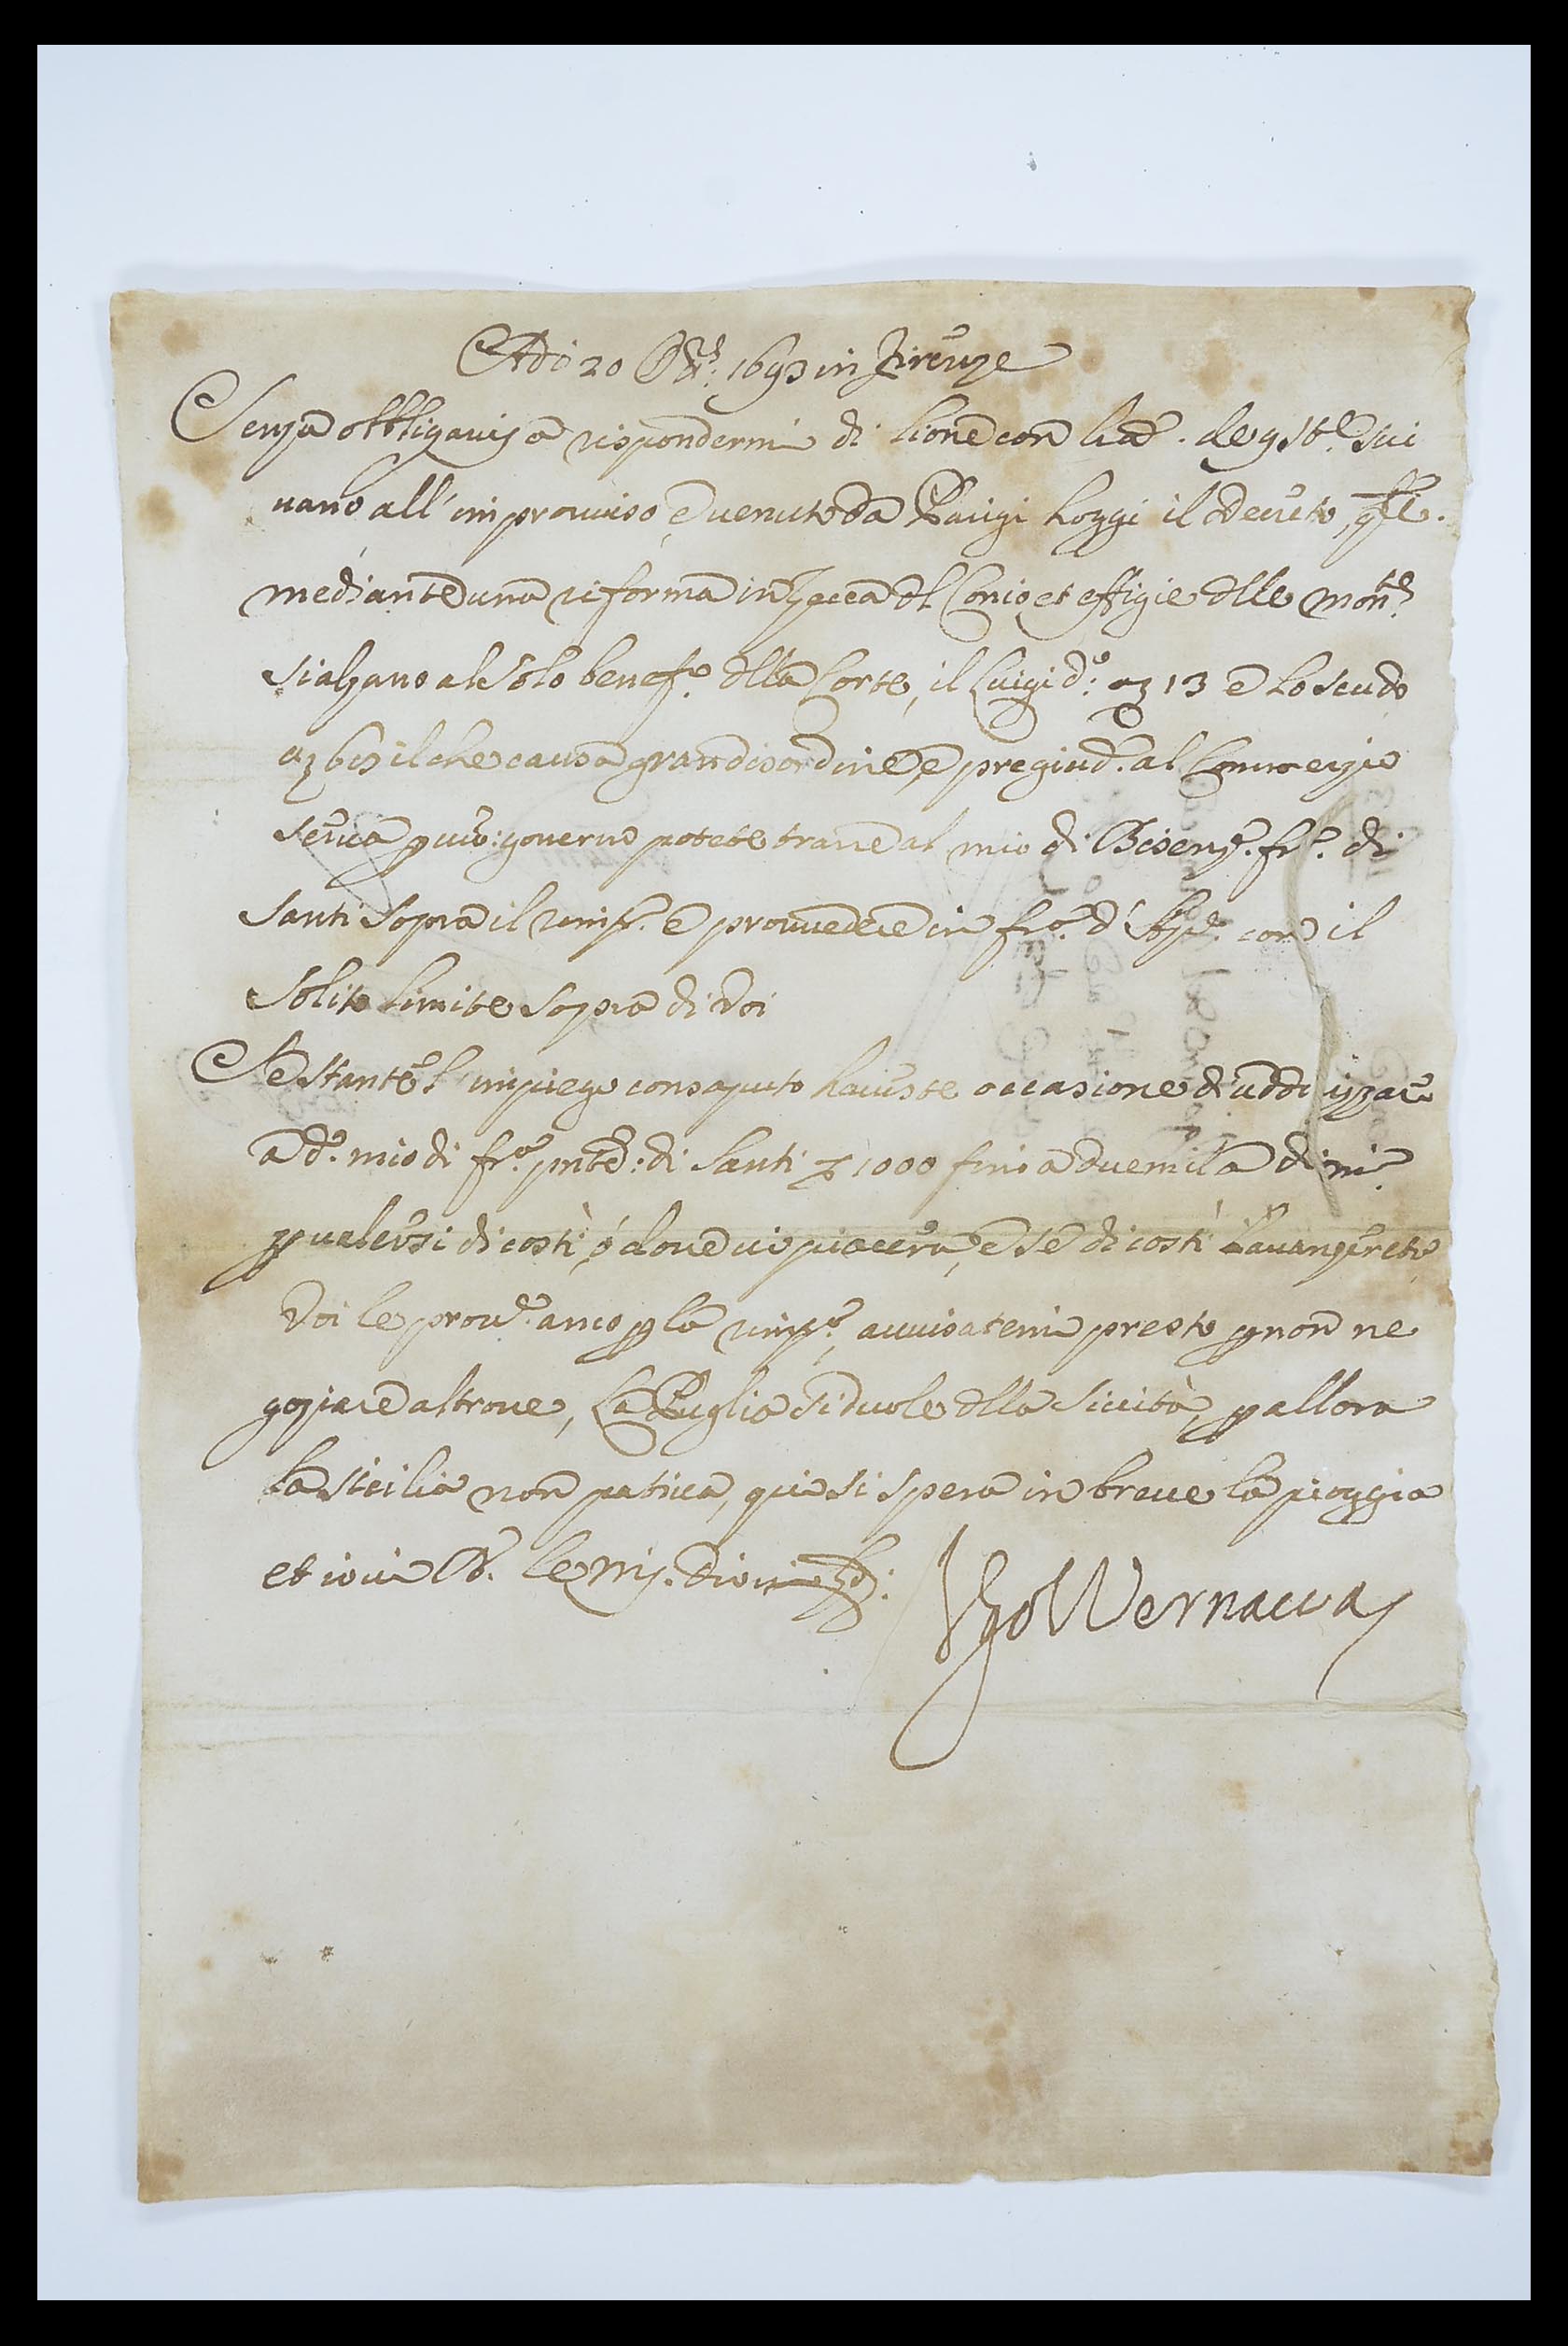 Adi 20 8bre: 1693 in Firenze
Senza obbligarvi a rispondermi di Lione con lra. de 9 stte. scri
vano all'improuuiso, è uenuto da Parigi hoggi il decreto, che.
mediante una riforma in Zecca dl Conio, et effigie dlle mont.e
si alzano al solo benef.o dlla Corte, il Luigi d.o: a 13 e lo scudo
a 6 il che causa gran disordine, e pregiud. al Commerzio
serua p uro: gouerno potete trarre al mio di Bisenz.e fr.a di
Santi sopra il e prouuedere in fr.a d' con il
solito limite sopra di Voi
Se stante l'impiego consaputo haueste occasione d'
a d.o mio di fr.a di Santi 1000 fino a duemila di
p ualersi di costì, ò doue ui piacerà, e se di costì l'auanzerete
Voi le prou.e anco p la , auuisatemi presto p non ne
goziare altroue, La Puglia si duole dlla Siccità, p allora
la Sicilia non patiua, qui si spera in breue la pioggia
et iui
Ugo Vernacca